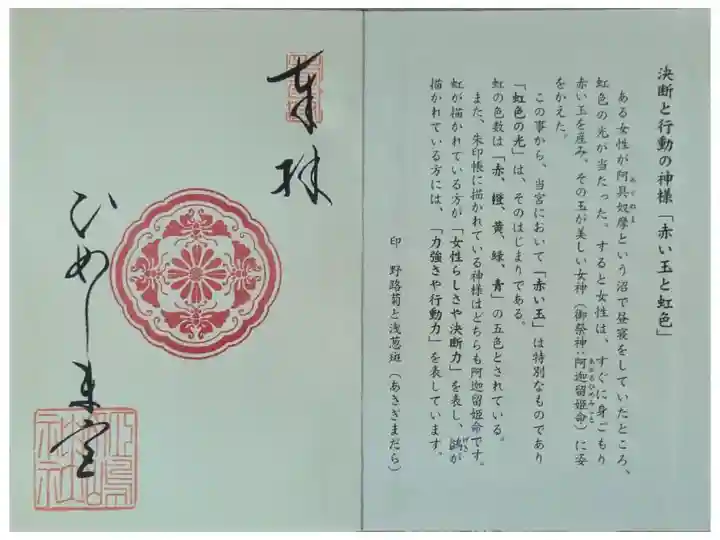 決断と行動の神様「赤い玉と虹色」
ある女性が阿具奴摩という沼で昼寝をしていたところ、
虹色の光が当たった。すると女性は、すぐに身ごもり
赤い玉を産み、その玉が美しい女神（御祭神：阿迦留姫命）に姿
をかえた。
この事から、当宮において「赤い玉」は特別なものであり
「虹色の光」は、そのはじまりである。
虹の色数は「赤、橙、黄、緑、青」の五色とされている。
また、朱印帳に描かれている神様はどちらも阿迦留姫命です。
虹が描かれている方が「女性らしさや決断力」を表し、鷁が
描かれている方には、「力強さや行動力」を表しています。
印　野路菊と浅葱斑（あさぎまだら）
奉拝
ひめしま宮